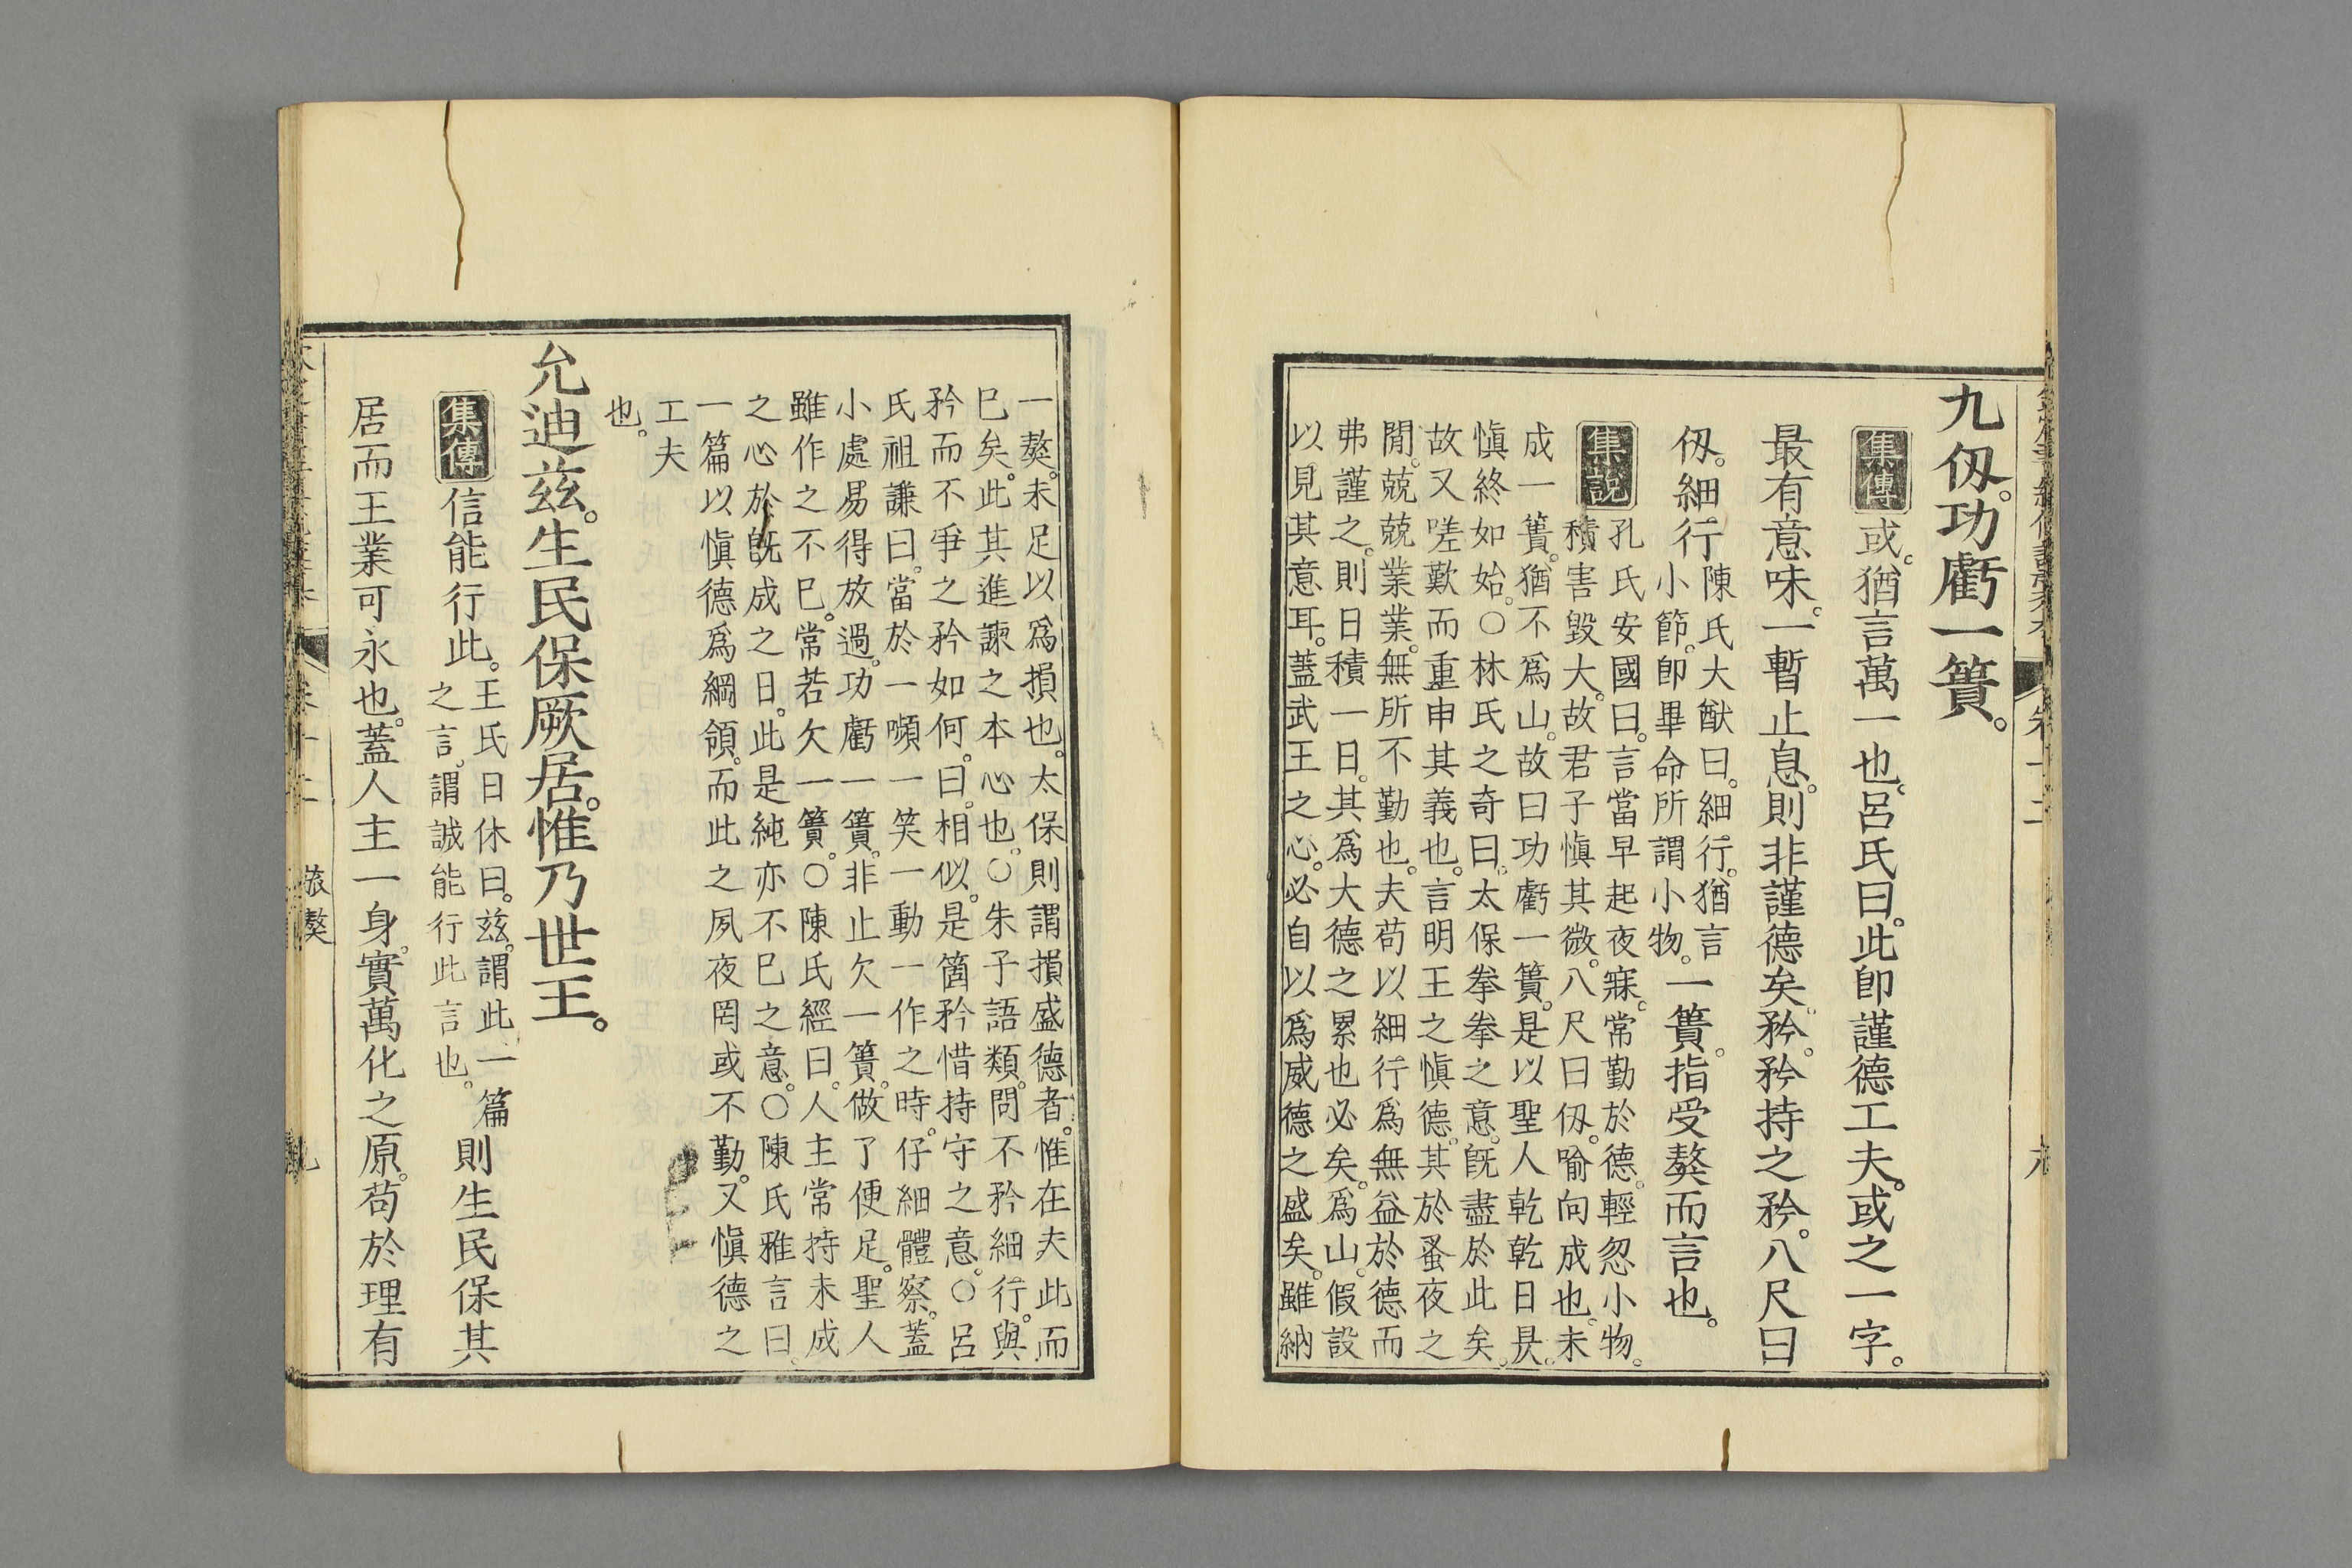 九仭。功虧一簣。
集傳 或。猶言萬一也。呂氏曰。此卽謹德工夫。或之一字。
最有意味。一暫止息。則非謹德矣。矜。矜持之矜。八尺曰
仭。細行。陳氏大猷曰。細行。猶言小節。卽畢命所謂小物。一簣。指受獒而言也。
集說 孔氏安國曰。言當早起夜寐。常勤於德。輕忽小物。
積害毀大。故君子愼其微。八尺曰仭。喻向成也。未
成一簣。猶不爲山。故曰功虧一簣。是以聖人乾乾日昃。
愼終如始。○林氏之奇曰。太保拳拳之意。旣盡於此矣。
故又嗟歎而重申其義也。言明王之愼德。其於蚤夜之
閒。兢兢業業。無所不勤也。夫苟以細行爲無益於德而
弗謹之。則日積一日。其爲大德之累也必矣。爲山。假設
以見其意耳。蓋武王之心。必自以爲威德之盛矣。雖納
一獒。未足以爲損也。太保則謂損盛德者。惟在夫此而
已矣。此其進諫之本心也。○朱子語類。問不矜細行。與
矜而不爭之矜如何。曰。相似。是箇矜惜持守之意。○呂
氏祖謙曰。當於一嚬一笑一動一作之時。仔細體察。蓋
小處易得放過。功虧一簣。非止欠一簣。做了便足。聖人
雖作之不已。常若欠一簣。○陳氏經曰。人主常持未成
之心於旣成之日。此是純亦不已之意。○陳氏雅言曰。
一篇以愼德爲綱領。而此之夙夜罔或不勤。又愼德之
工夫
也。
允迪兹。生民保厥居。惟乃世王。
集傳 信能行此。王氏日休曰。兹。謂此一篇之言。謂誠能行此言也。則生民保其
居而王業可永也。蓋人主一身。實萬化之原。苟於理有
旅獒